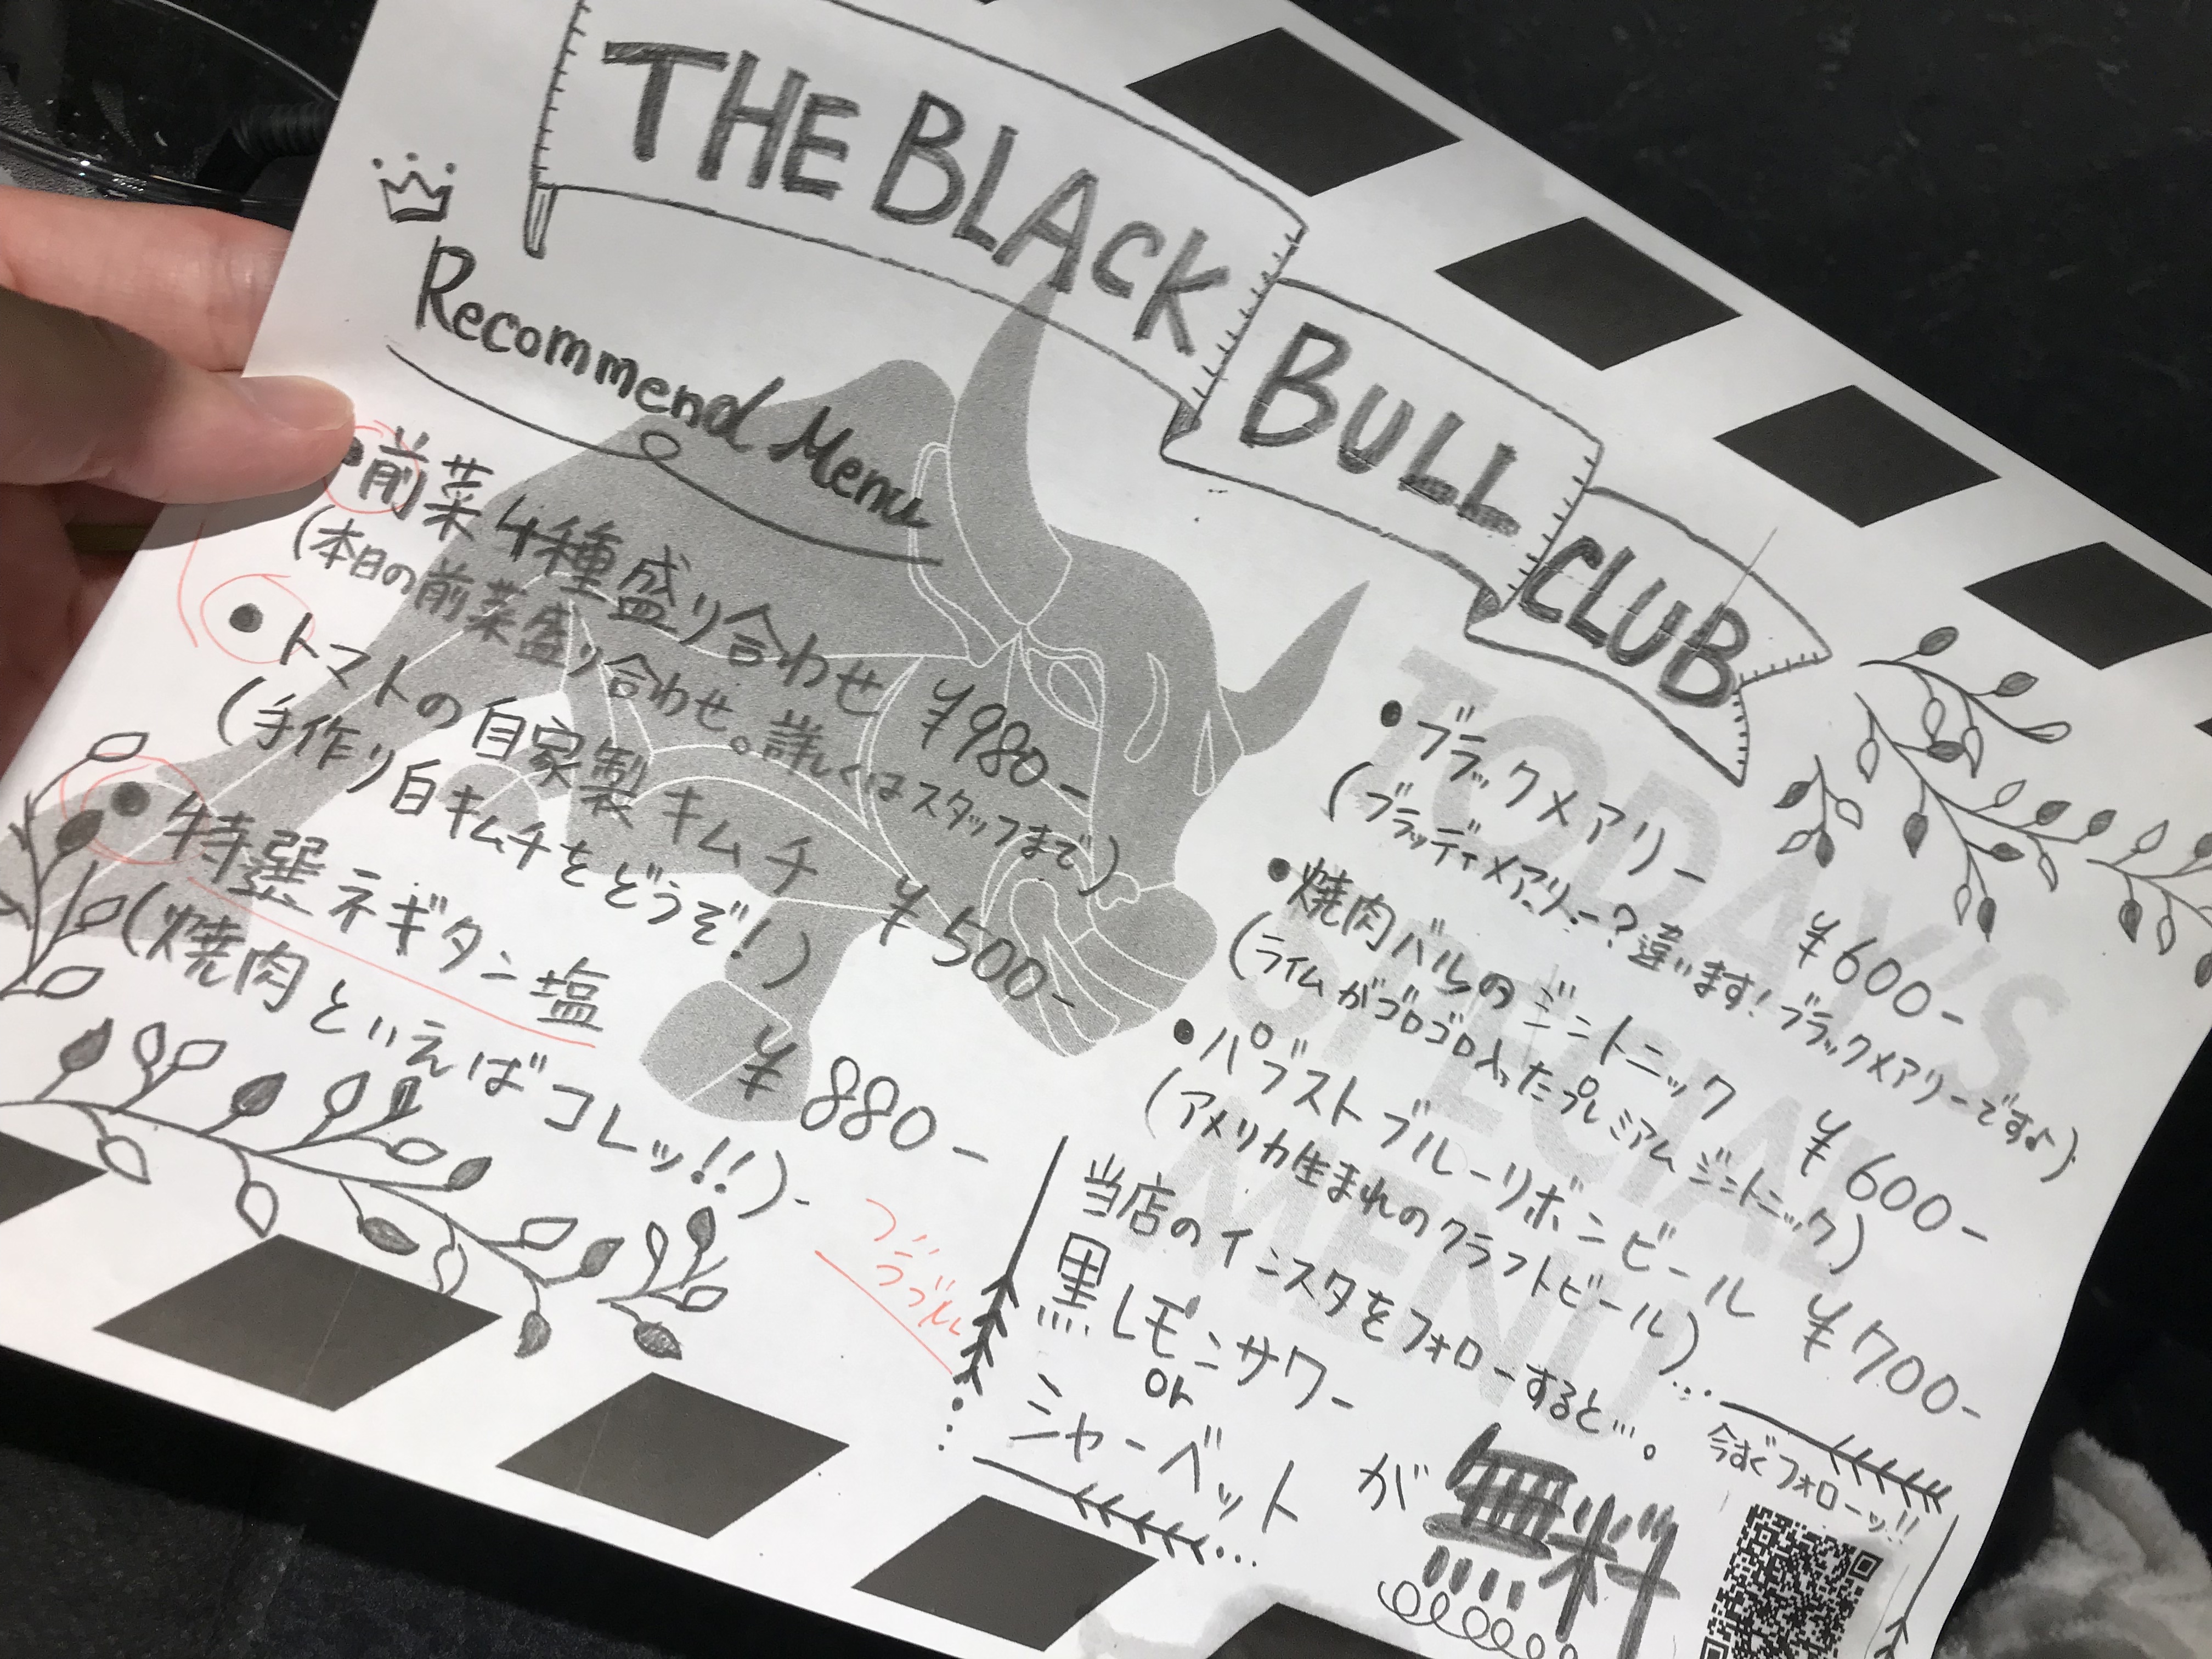 THE BLACK BULL CLUB
Recommend Menu
•前菜4種盛り合わせ ¥980-
(本日の前菜盛り合わせ。詳しくはスタッフまで)
•トマトの自家製キムチ ¥500-
(手作り白キムチをどうぞ!)
•特選ネギタン塩 ¥880-
(焼肉といえばコレッ!!)
TODAY'S
SPECIAL
MENU
•ブラックメアリー ¥600-
(ブラッディメアリー?違います!ブラックメアリーですよ)
•焼肉バルのジントニック ¥600-
(ライムがゴロゴロ入ったプレミアムジントニック)
•パブストブルーリボンビール ¥700-
(アメリカ生まれのクラフトビール)
当店のインスタをフォローすると…。
黒レモンサワー
or
シャーベット が無料
今すぐフォローッ!!